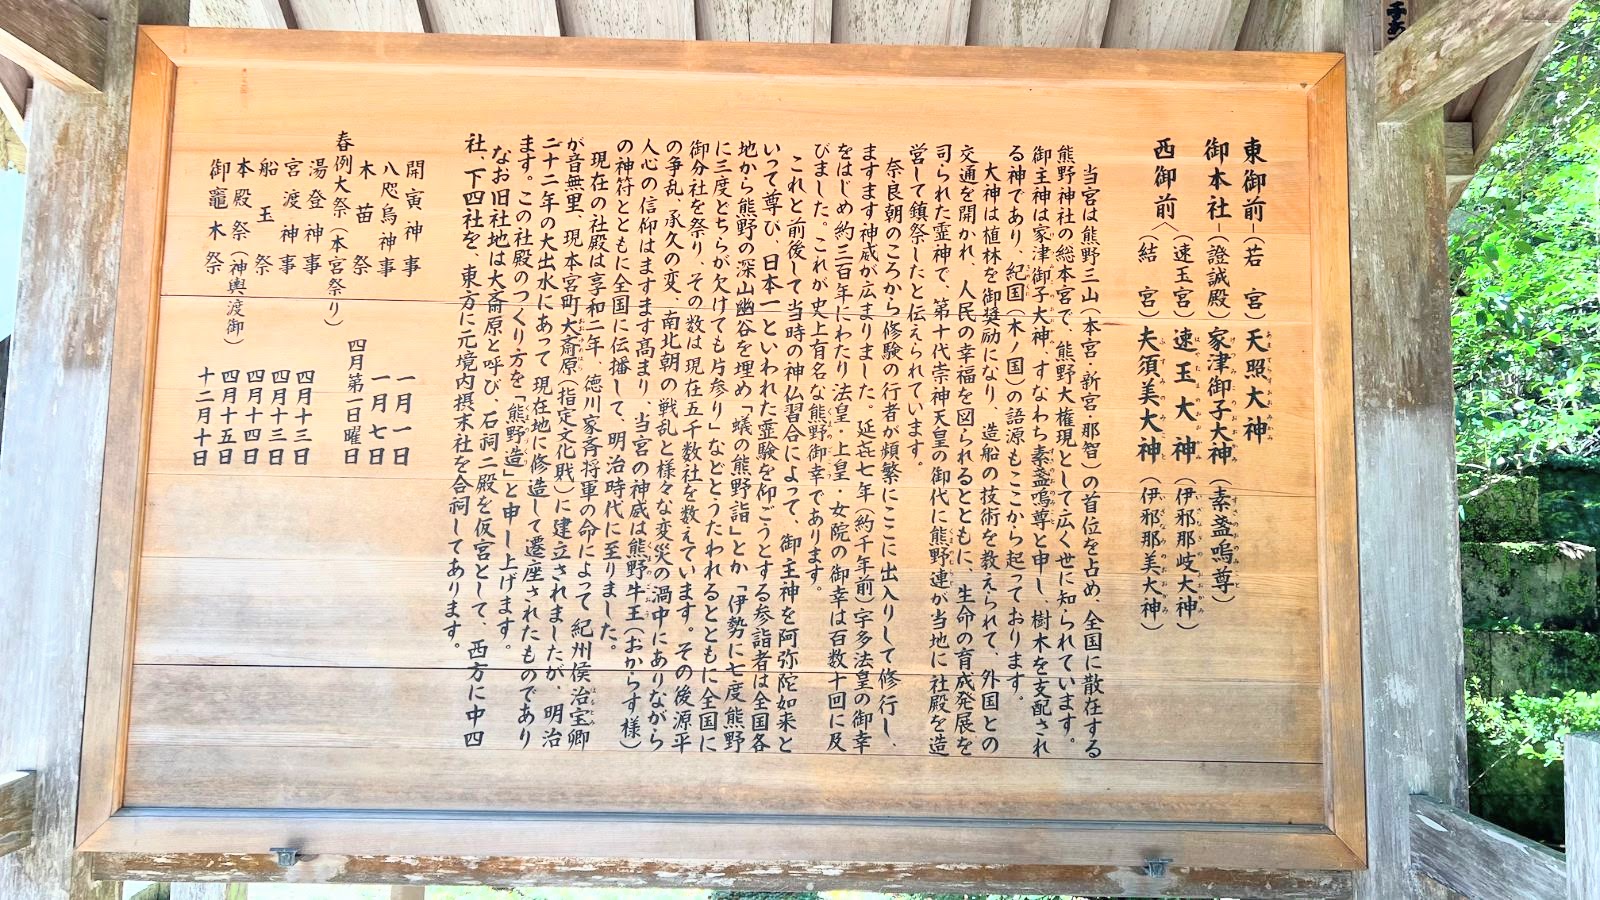 東御前―(若宮)天照大神
御本社―(證誠殿)家津御子大神(素盞嗚尊)
(速玉宮)速玉大神(伊邪那岐大神)
西御前
(結宮)夫須美大神(伊邪那美大神)
当宮は熊野三山(本宮・新宮・那智)の首位を占め、全国に散在する
熊野神社の総本宮で、熊野大権現として広く世に知られています。
御主神は家津御子大神、すなわち素盞嗚尊と申し、樹木を支配され
る神であり、紀国(木ノ国)の語源もここから起っております。
大神は植林を御奨励になり、造船の技術を教えられて、外国との
交通を開かれ、人民の幸福を図られるとともに、生命の育成発展を
司られた霊神で、第十代崇神天皇の御代に熊野連が当地に社殿を造
営して鎮祭したと伝えられています。
奈良朝のころから修験の行者が頻繁にここに出入りして修行し、
ますます神威が広まりました。延㐂七年(約千年前)宇多法皇の御幸
をはじめ約三百年にわたり法皇・上皇・女院の御幸は百数十回に及
びました。これが史上有名な熊野御幸であります。
これと前後して当時の神仏習合によって、御主神を阿弥陀如来と
いって尊び、日本一といわれた霊験を仰ごうとする参詣者は全国各
地から熊野の深山幽谷を埋め「蟻の熊野詣」とか「伊勢に七度熊野
に三度どちらが欠けても片参り」などとうたわれるとともに全国に
御分社を祭り、その数は現在五千数社を数えています。その後源平
の争乱、承久の変、南北朝の戦乱と様々な変災の渦中にありながら
人心の信仰はますます高まり、当宮の神威は熊野牛王(おからす様)
の神符とともに全国に伝播して、明治時代に至りました。
現在の社殿は享和二年、徳川家斉将軍の命によって紀州侯治宝卿
が音無里、現本宮町大斎原(指定文化財)に建立されましたが、明治
二十二年の大出水にあって現在地に修造して遷座されたものであり
ます。この社殿のつくり方を「熊野造」と申し上げます。
なお旧社地は大斎原と呼び、石祠二殿を仮宮として、西方に中四
社、下四社を、東方に元境内摂末社を合祠してあります。
開寅神事 一月一日
八咫烏神事 一月七日
木苗祭 四月第一日曜日
春例大祭(本宮祭り)
湯登神事 四月十三日
宮渡神事 四月十三日
船玉祭 四月十四日
本殿祭(神輿渡御) 四月十五日
御竈木祭 十二月十日